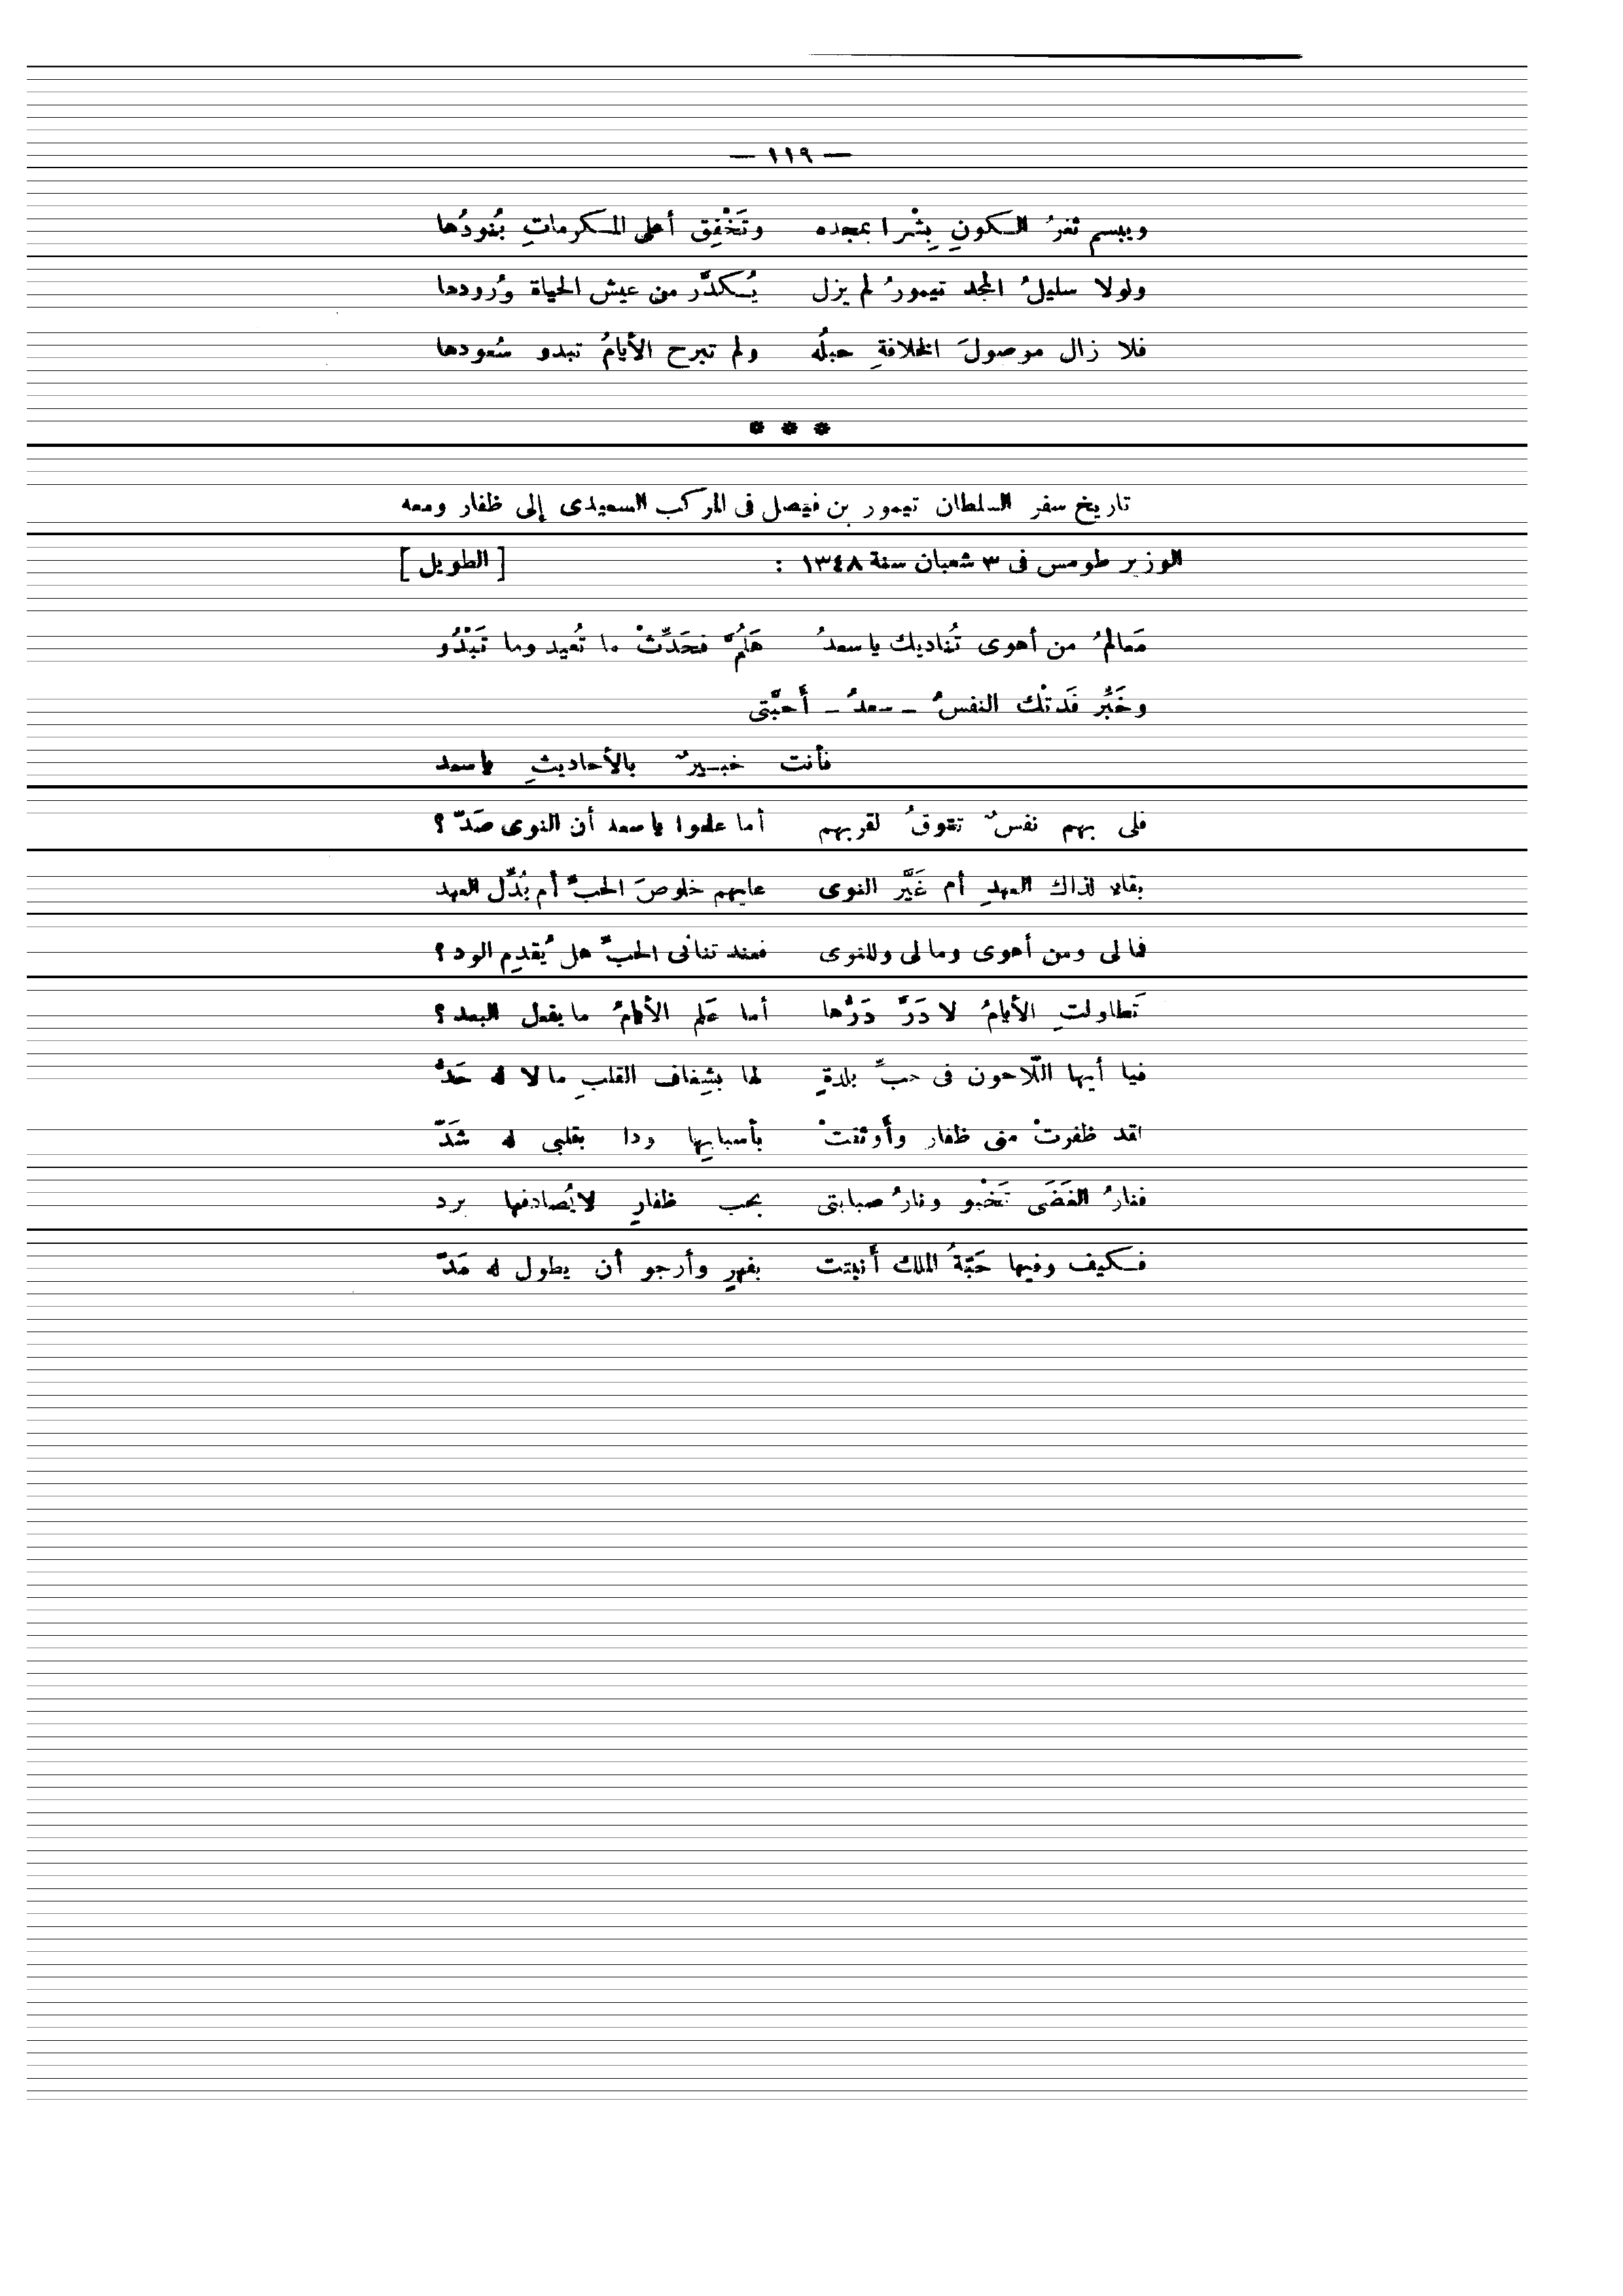 — ١١٩ —
ويبسم ثغرُ الكونِ بِشْرا بمجده وتَخْفِق أعلى المكرماتِ بُنودُها
ولولا سليلُ المجد تيمورُ لم يزل يُكدَّر من عيش الحياة وُرودها
فلا زال موصولَ الخلافةِ حبلُه ولم تبرح الأيامُ تبدو سُعودها
* * *
تاريخ سفر السلطان تيمور بن فيصل فى المركب السعيدى إلى ظفار ومعه
الوزير طومس فى ٣ شعبان سنة ١٣٤٨ : [ الطويل ]
مَعالمُ من أهوى تُناديك ياسعدُ هَلُمَّ فحَدِّثْ ما تُعيد وما تَبْدُو
وخَبِّر فَدتْك النفسُ – سعدُ – أَحبَّتى
فأنت خبيرٌ بالأحاديثِ ياسعد
فلى بهم نفسٌ تتوقُ لقربهم أما علموا ياسعد أن النوى صَدّ ؟
بقاء لذاك العهدِ أم غَيَّر النوى عليهم خلوصَ الحبِّ أم بُدِّل العهد
فمالى ومن أهوى ومالى وللنوى فعند تنائى الحبِّ هل يُقدِم الود ؟
تَطاولتِ الأيامُ لا دَرَّ دَرُّها أما عَلم الأيامُ مايفعل البعد ؟
فيا أيها اللّاحون فى حبِّ بلدةٍ لها بشِغاف القلبِ مالا له حَدُّ
لقد ظفرتْ منى ظفار وأوثقتْ بأسبابِها ودا بقلبى له شَدّ
فنارُ الغَضَى تَخْبو ونارُ صبابتى بحب ظفارٍ لايُصادفها برد
فكيف وفيها حَبّةُ الملك أَنبتت بفهرٍ وأرجو أن يطول له مَدّ